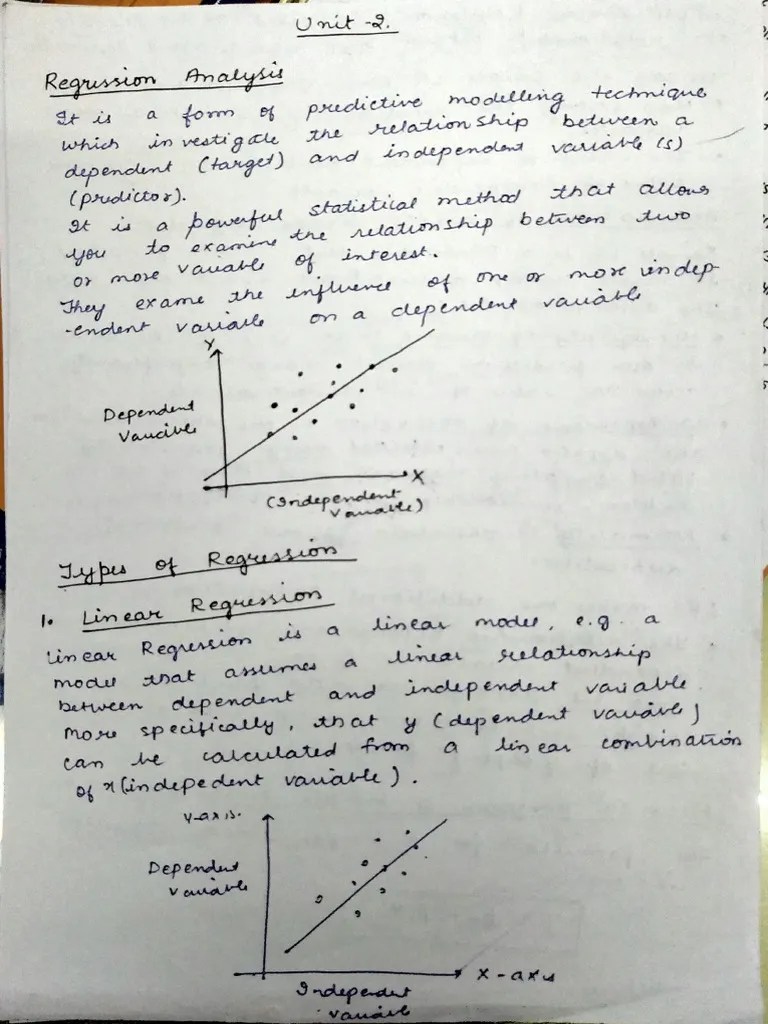 Unit -2.
Regression Analysis
It is a form of predictive modelling technique
which investigate the relationship between a
dependent (target) and independent variable(s)
(predictor).
It is a powerful statistical method that allows
you to examine the relationship between two
or more variable of interest.
They exame the influence of one or more indep-
-endent variable on a dependent variable
Y
Dependent
Variable
X
(Independent
Variable)
Types of Regression
1. Linear Regression
Linear Regression is a linear model, e.g. a
model that assumes a linear relationship
between dependent and independent variable.
More specifically, that y (dependent variable)
can be calculated from a linear combination
of x (indepedent variable).
y-axis.
Dependent
variable
X-axis
Independent
variable